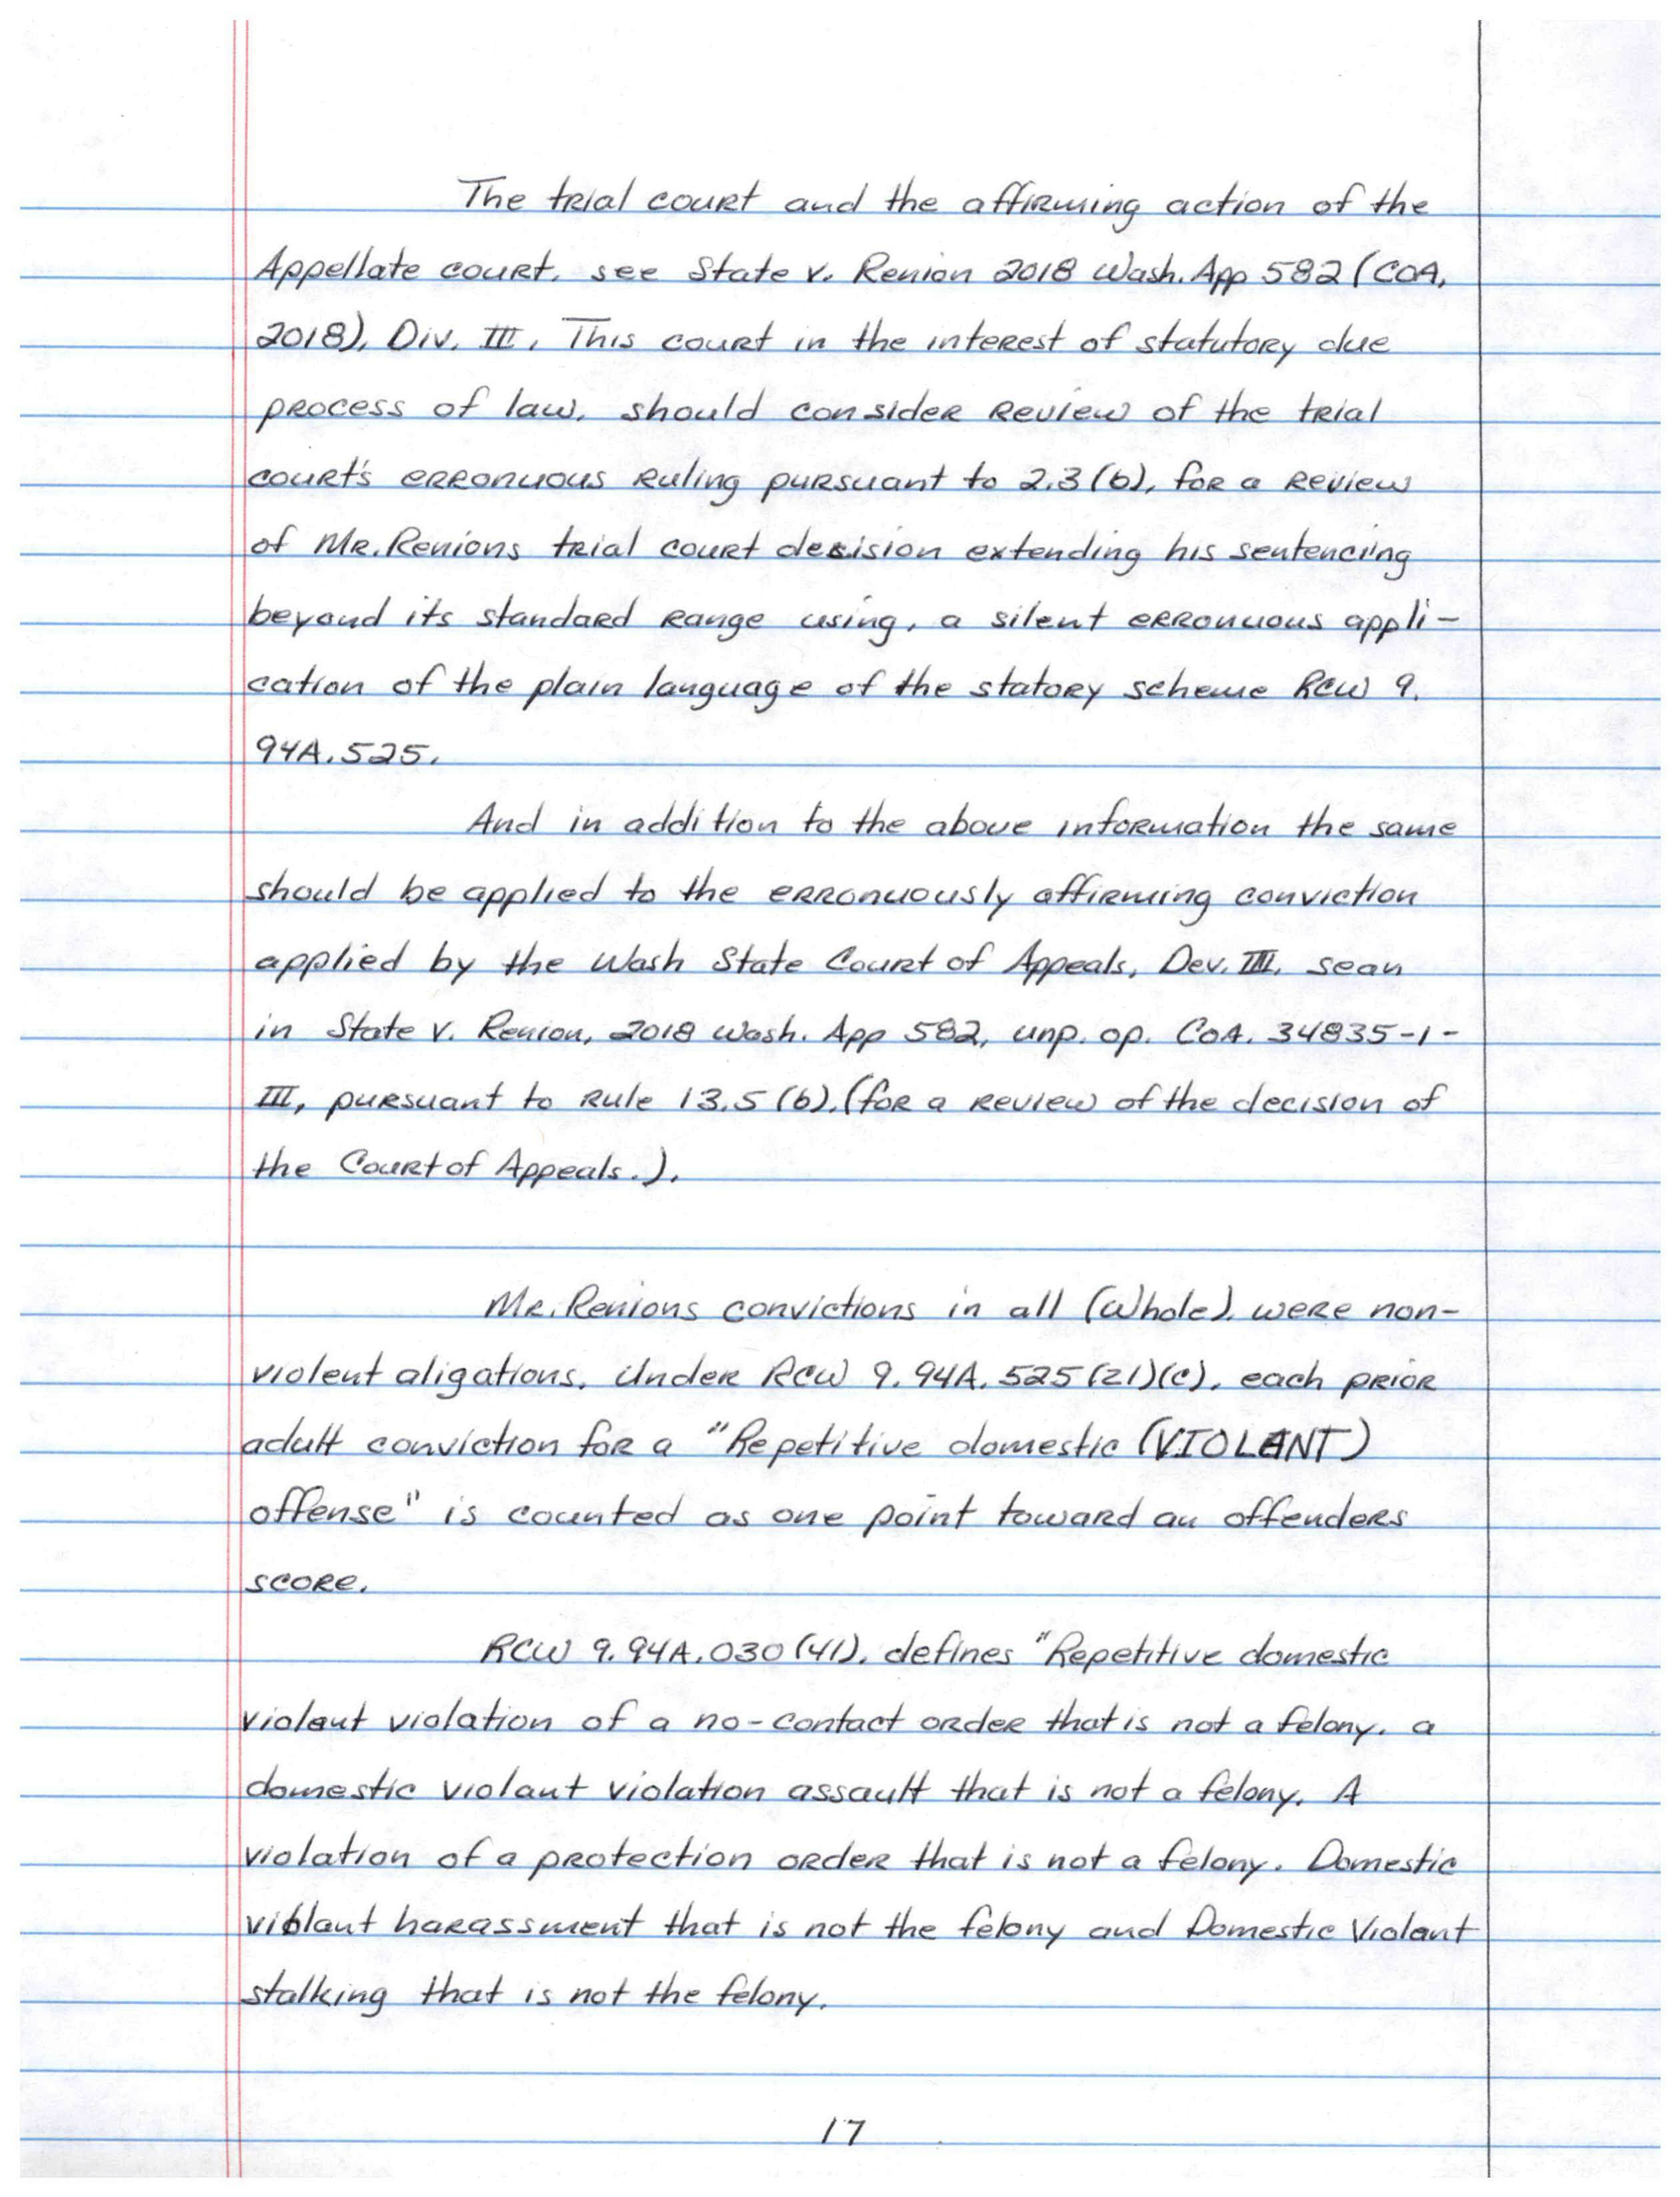 The trial court and the affirming action of the
Appellate court, see State v. Renion 2018 Wash. App 582 (COA,
2018), Div. III, This court in the interest of statutory due
process of law, should consider review of the trial
court's erronuous ruling pursuant to 2.3(b), for a review
of Mr. Renions trial court decision extending his sentencing
beyond its standard range using, a silent erronuous appli-
cation of the plain language of the statory scheme RCW 9.
94A.525.
And in addition to the above information the same
should be applied to the erronuously affirming conviction
applied by the Wash State Court of Appeals, Dev. III, sean
in State v. Renion, 2018 Wash. App 582, unp. op. COA. 34835-1-
III, pursuant to rule 13.5(b), (for a review of the decision of
the Court of Appeals.).
Mr. Renions convictions in all (Whole), were non-
violent aligations, Under RCW 9.94A.525(21)(c), each prior
adult conviction for a "Repetitive domestic (VIOLANT)
offense" is counted as one point toward an offenders
score.
RCW 9.94A.030(41), defines "Repetitive domestic
violaut violation of a no-contact order that is not a felony, a
domestic violant violation assault that is not a felony. A
violation of a protection order that is not a felony. Domestic
violant harassment that is not the felony and Domestic Violant
stalking that is not the felony.
17